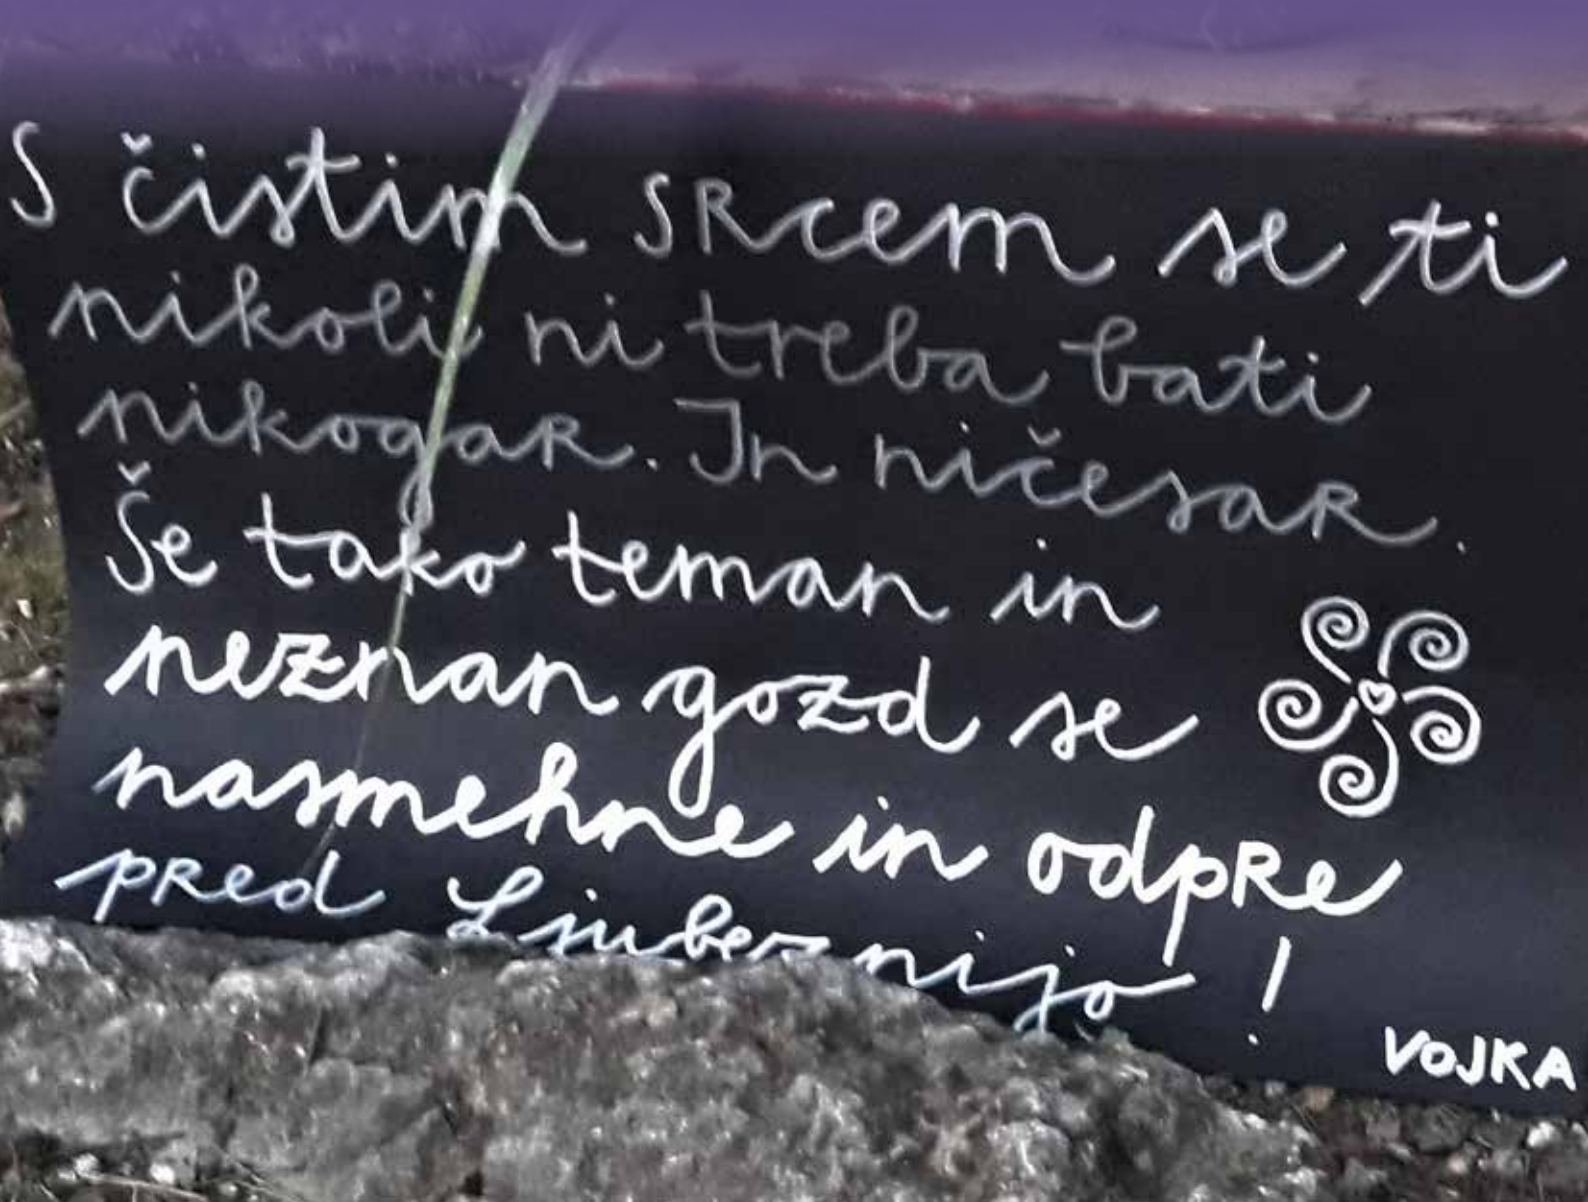 S čistim SRcem se ti
nikoli ni treba bati
nikogaR. In ničesaR.
Še tako teman in
neznan gozd se
nasmehne in odpRe
pRed Ljubeznijo!
VOJKA